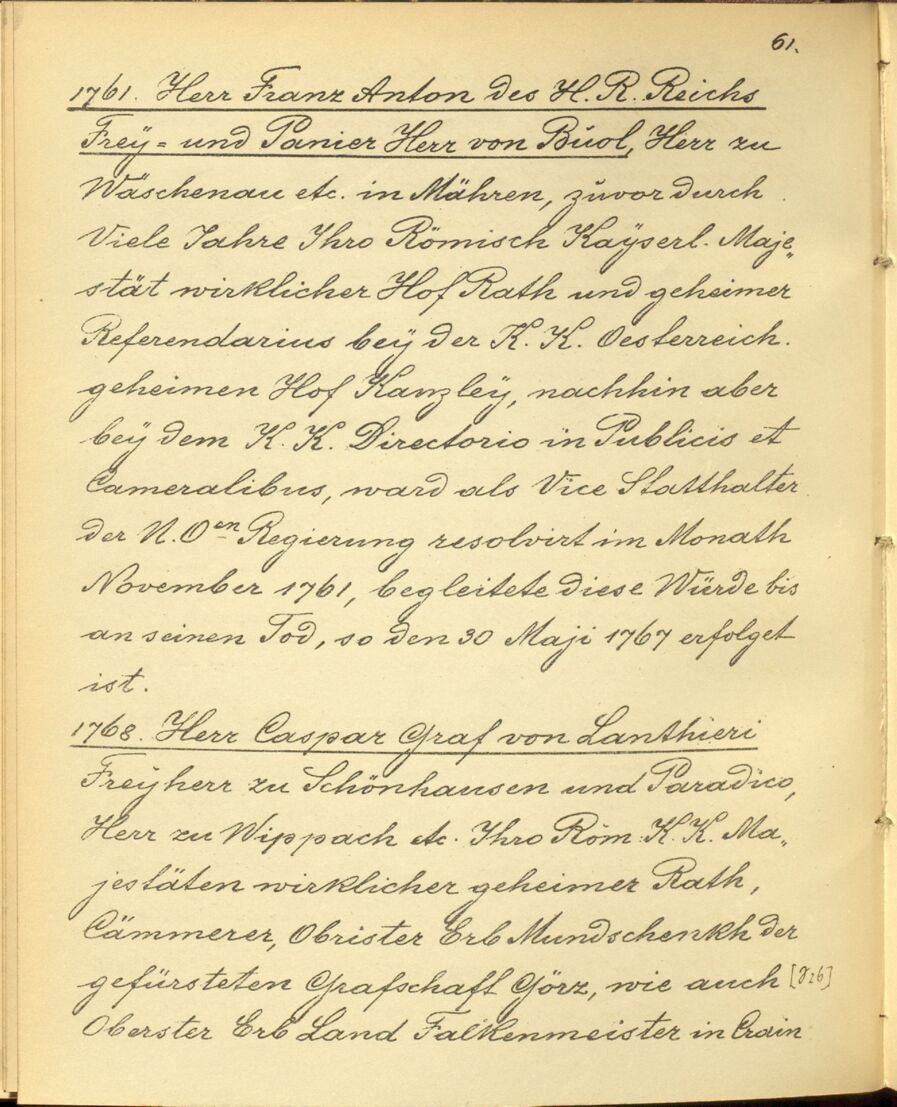 61.
1761. Herr Franz Anton des H. R. Reichs
Freÿ= und Panier Herr von Buol, Herr zu
Wäschenau etc. in Mähren, zuvor durch
Viele Jahre Ihro Römisch Kaÿserl. Maje„
stät wirklicher Hof Rath und geheimer
Referendarius beÿ der K. K. Oesterreich.
geheimen Hof Kanzleÿ, nachhin aber
beÿ dem K. K. Directorio in Publicis et
Cameralibus, ward als Vice Statthalter
der N. Oen Regierung resolvirt im Monath
November 1761, begleitete diese Würde bis
an seinen Tod, so den 30 Maji 1767 erfolget
ist.
1768. Herr Caspar Graf von Lanthieri
Freÿherr zu Schönhausen und Paradico,
Herr zu Wippach etc. Ihro Röm. K. K. Ma„
jestäten wirklicher geheimer Rath,
Cämmerer, Obrister Erb Mundschenkh der
gefürsteten Grafschaft Görz, wie auch
Oberster Erb Land Falkenmeister in Crain